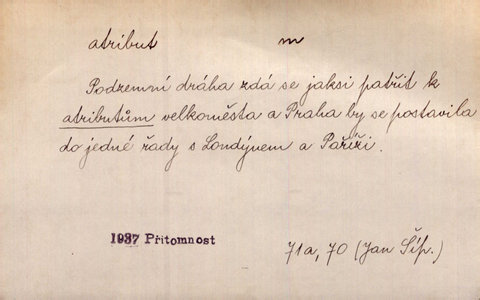 atribut m
Podzemní dráha zdá se jaksi patřit k
atributům velkoměsta a Praha by se postavila
do jedné řady s Londýnem a Paříži.
1937 Přítomnost
71a, 70 (Jan Šíp.)